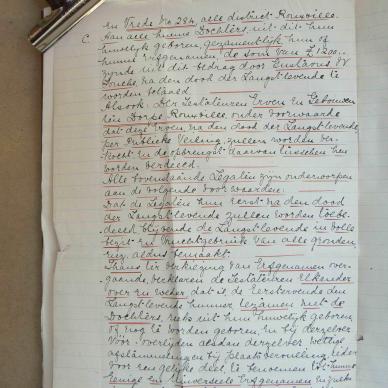 en Vrede No 294, alle district Rouxville.
C. Aan alle hunne Dochters, uit dit hun
huwelijk geboren, gezamentlijk hun of
hunne erfgenamen, de som van £1200..
zijnde uit dit bedrag door Gustavus W
na den dood der Langstlevende te
worden betaald.
Alsook: Der Testateuren Erven en Gebouwen
ten Dorpe Rouxville, onder voorwaarde
dat deze Erven, na den dood der Langstlevende
per Publieke Veiling zullen worden ver-
kocht en de opbrengst daarvan tusschen hen
worden verdeeld.
Alle bovenstaande Legaten zijn onderworpen
aan de volgende voorwaarden:
Dat de Legaten hun eerst na den dood
der Langstlevende zullen worden toebe-
deeld blijvende de Langstlevende in volle
bezit en vruchtgebruik van alle gronden,
aldus bemaakt.
Thans ter verkiezing van Erfgenamen over-
gaande, verklaren de testateuren Elkander
over en weder dat is de Eerststervende den
Langstlevende hunner, tezamen met de
Dochters, reeds uit hun huwelijk geboren
of nog te worden geboren, en bij derzelver
vóór-overlijden alsdan derzelver wettige
afstammelingen bij plaatsvervulling, ieder
voor een gelijke deel, te benoemen tot
eenige en universeele Erfgenamen